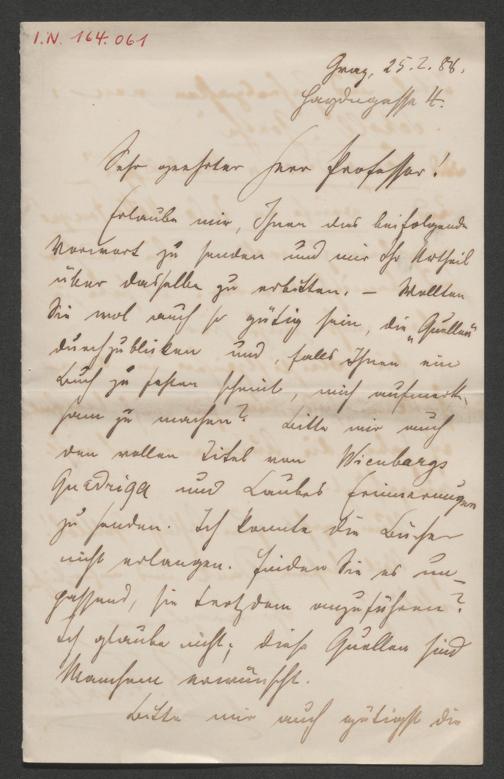 I.N. 164.061
Graz, 25.2.88.
Haydngasse 4.
Sehr geehrter Herr Professor!
Erlaube mir, Ihnen das beifolgende
Vorwort zu senden und mir Ihr Urtheil
über dasselbe zu erbitten. — Wollten
Sie wol auch so gütig sein, die „Quellen"
durchzublicken und, falls Ihnen ein
Buch zu fehlen scheint, mich aufmerk-
sam zu machen? Bitte mir auch
den vollen Titel von Wienbargs
Quadriga und Laubes Erinnerungen
zu senden. Ich konnte die Bücher
nicht erlangen. Finden Sie es un-
passend, sie trotzdem anzuführen?
Ich glaube nicht; diese Quellen sind
Manchem erwünscht.
Bitte mir auch gütigst die